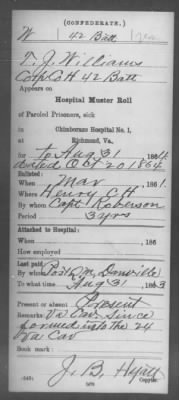 (CONFEDERATE.)
W 42 Batt
T. J. Williams
Corp Co H 42 Batt
Appears on
Hospital Muster Roll
of Paroled Prisoners, sick
in
Chimborazo Hospital No. 1,
at
Richmond, Va.
for to Aug 31 1864
dated Oct 20 1864
Enlisted:
When Mar 1861.
Where Henry C H
By whom Capt Roberson
Period 3 yrs
Attached to Hospital:
When 186
How employed
Last paid:
By whom Post Q M Danville
To what time Aug 31 1863
Present or absent Present
Remarks: Va Cav. Since
formed into the 24
Va Cav
Book mark:
J. B. Hyatt
(649) Copyist.